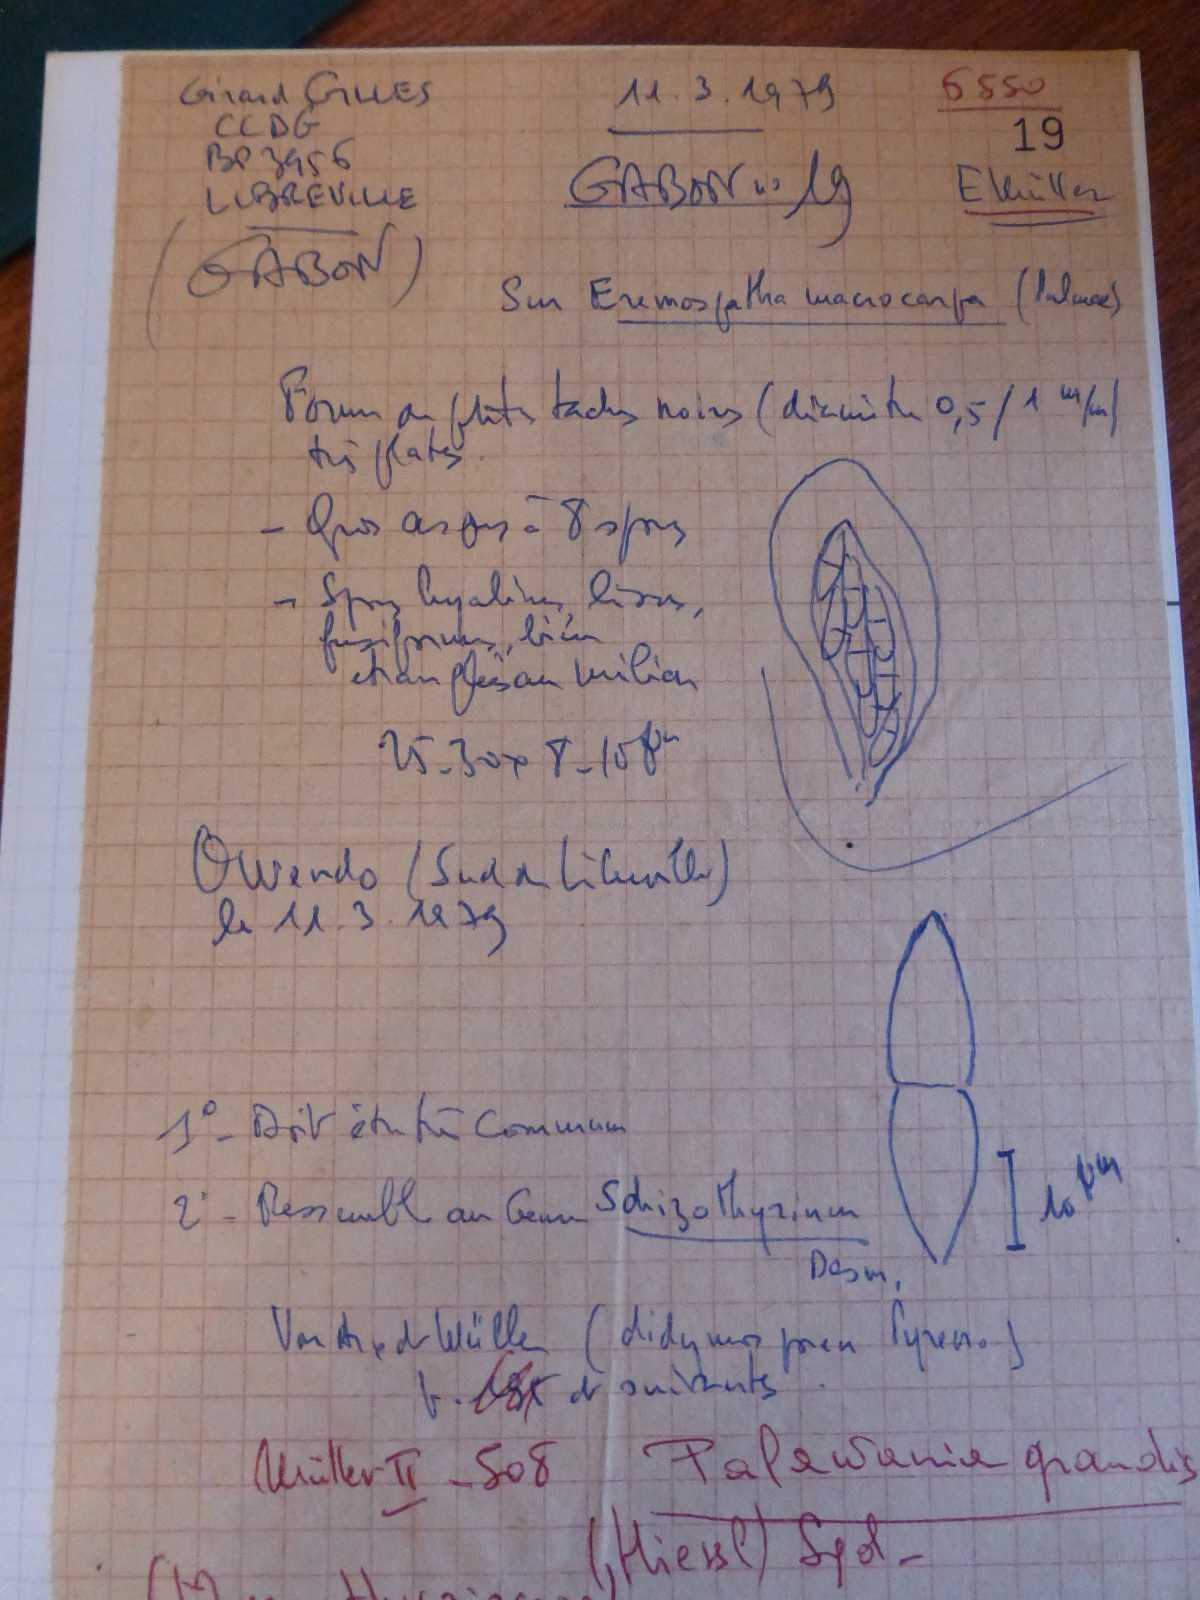 Girard GILLES
CCDG
BP 3956
LIBREVILLE
(GABON)
11.3.1979
6550
19
GABON n° 19
E Müller
Sur Eremospatha macrocarpa (Palmae)
Forme de ptites taches noires (diamètre 0,5/1 m/m)
très plates.
- Gros asques à 8 spores
- Spores hyalines, lisses,
fusiformes, bien
étranglées au milieu
25-30 x 8-10 µm
Owendo (Sud de Libreville)
le 11.3.1979
1° - Doit être très commun
2° - Ressemble au Genre Schizothyrium
Desm.
10 µm
Von Arx et Müller (didymosporen Pyreno.)
p. et suivantes.
Müller II - 508 Palawania grandis
(Niessl) Syd -